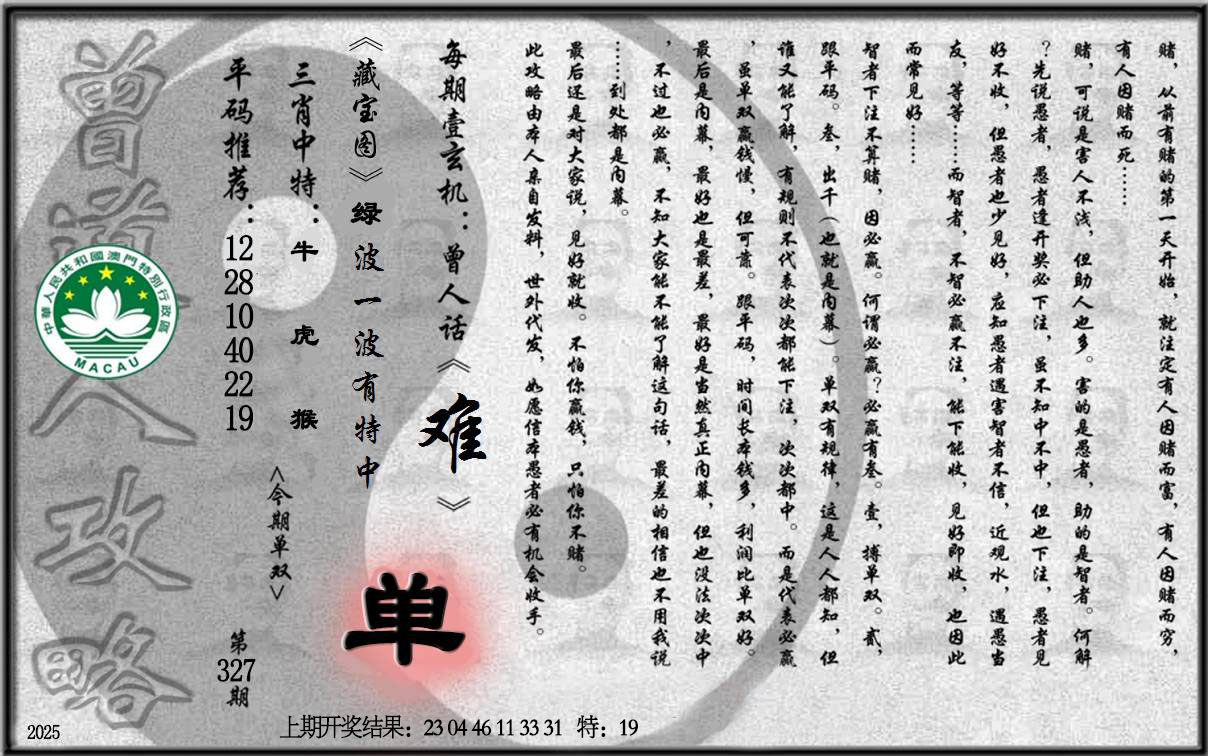 赌，从前有赌的第一天开始，就注定有人因赌而富，有人因赌而穷，
有人因赌而死……
赌，可说是害人不浅，但助人也多。害的是愚者，助的是智者。何解
？先说愚者，愚者逢开奖必下注，虽不知中不中，但也下注，愚者见
好不收，但愚者也少见好，应知愚者遇害智者不信，近观水，遇愚当
友，等等……而智者，不智必赢不注，能下能收，见好即收，也因此
而常见好……
智者下注不算赌，因必赢。何谓必赢？必赢有叁。壹，搏单双。贰，
跟平码。叁，出千（也就是内幕）。单双有规律，这是人人都知，但
谁又能了解，有规则不代表次次都能下注，次次都中。而是代表必赢
，虽单双赢钱慢，但可靠。跟平码，时间长本钱多，利润比单双好。
最后是内幕，最好也是最差，最好是当然真正内幕，但也没法次次中
，不过也必赢，不知大家能不能了解这句话，最差的相信也不用我说
……到处都是内幕。
最后还是对大家说，见好就收。不怕你赢钱，只怕你不赌。
此攻略由本人亲自发料，世外代发，如愿信本愚者必有机会收手。
每期壹玄机：曾人话《难》
《藏宝图》绿波一波有特中
单
三肖中特：牛虎猴
<今期单双>
平码推荐：
12
28
10
40
22
19
第
327
期
曾道人攻略
中華人民共和國澳門特別行政區
MACAU
2025
上期开奖结果：23 04 46 11 33 31 特：19